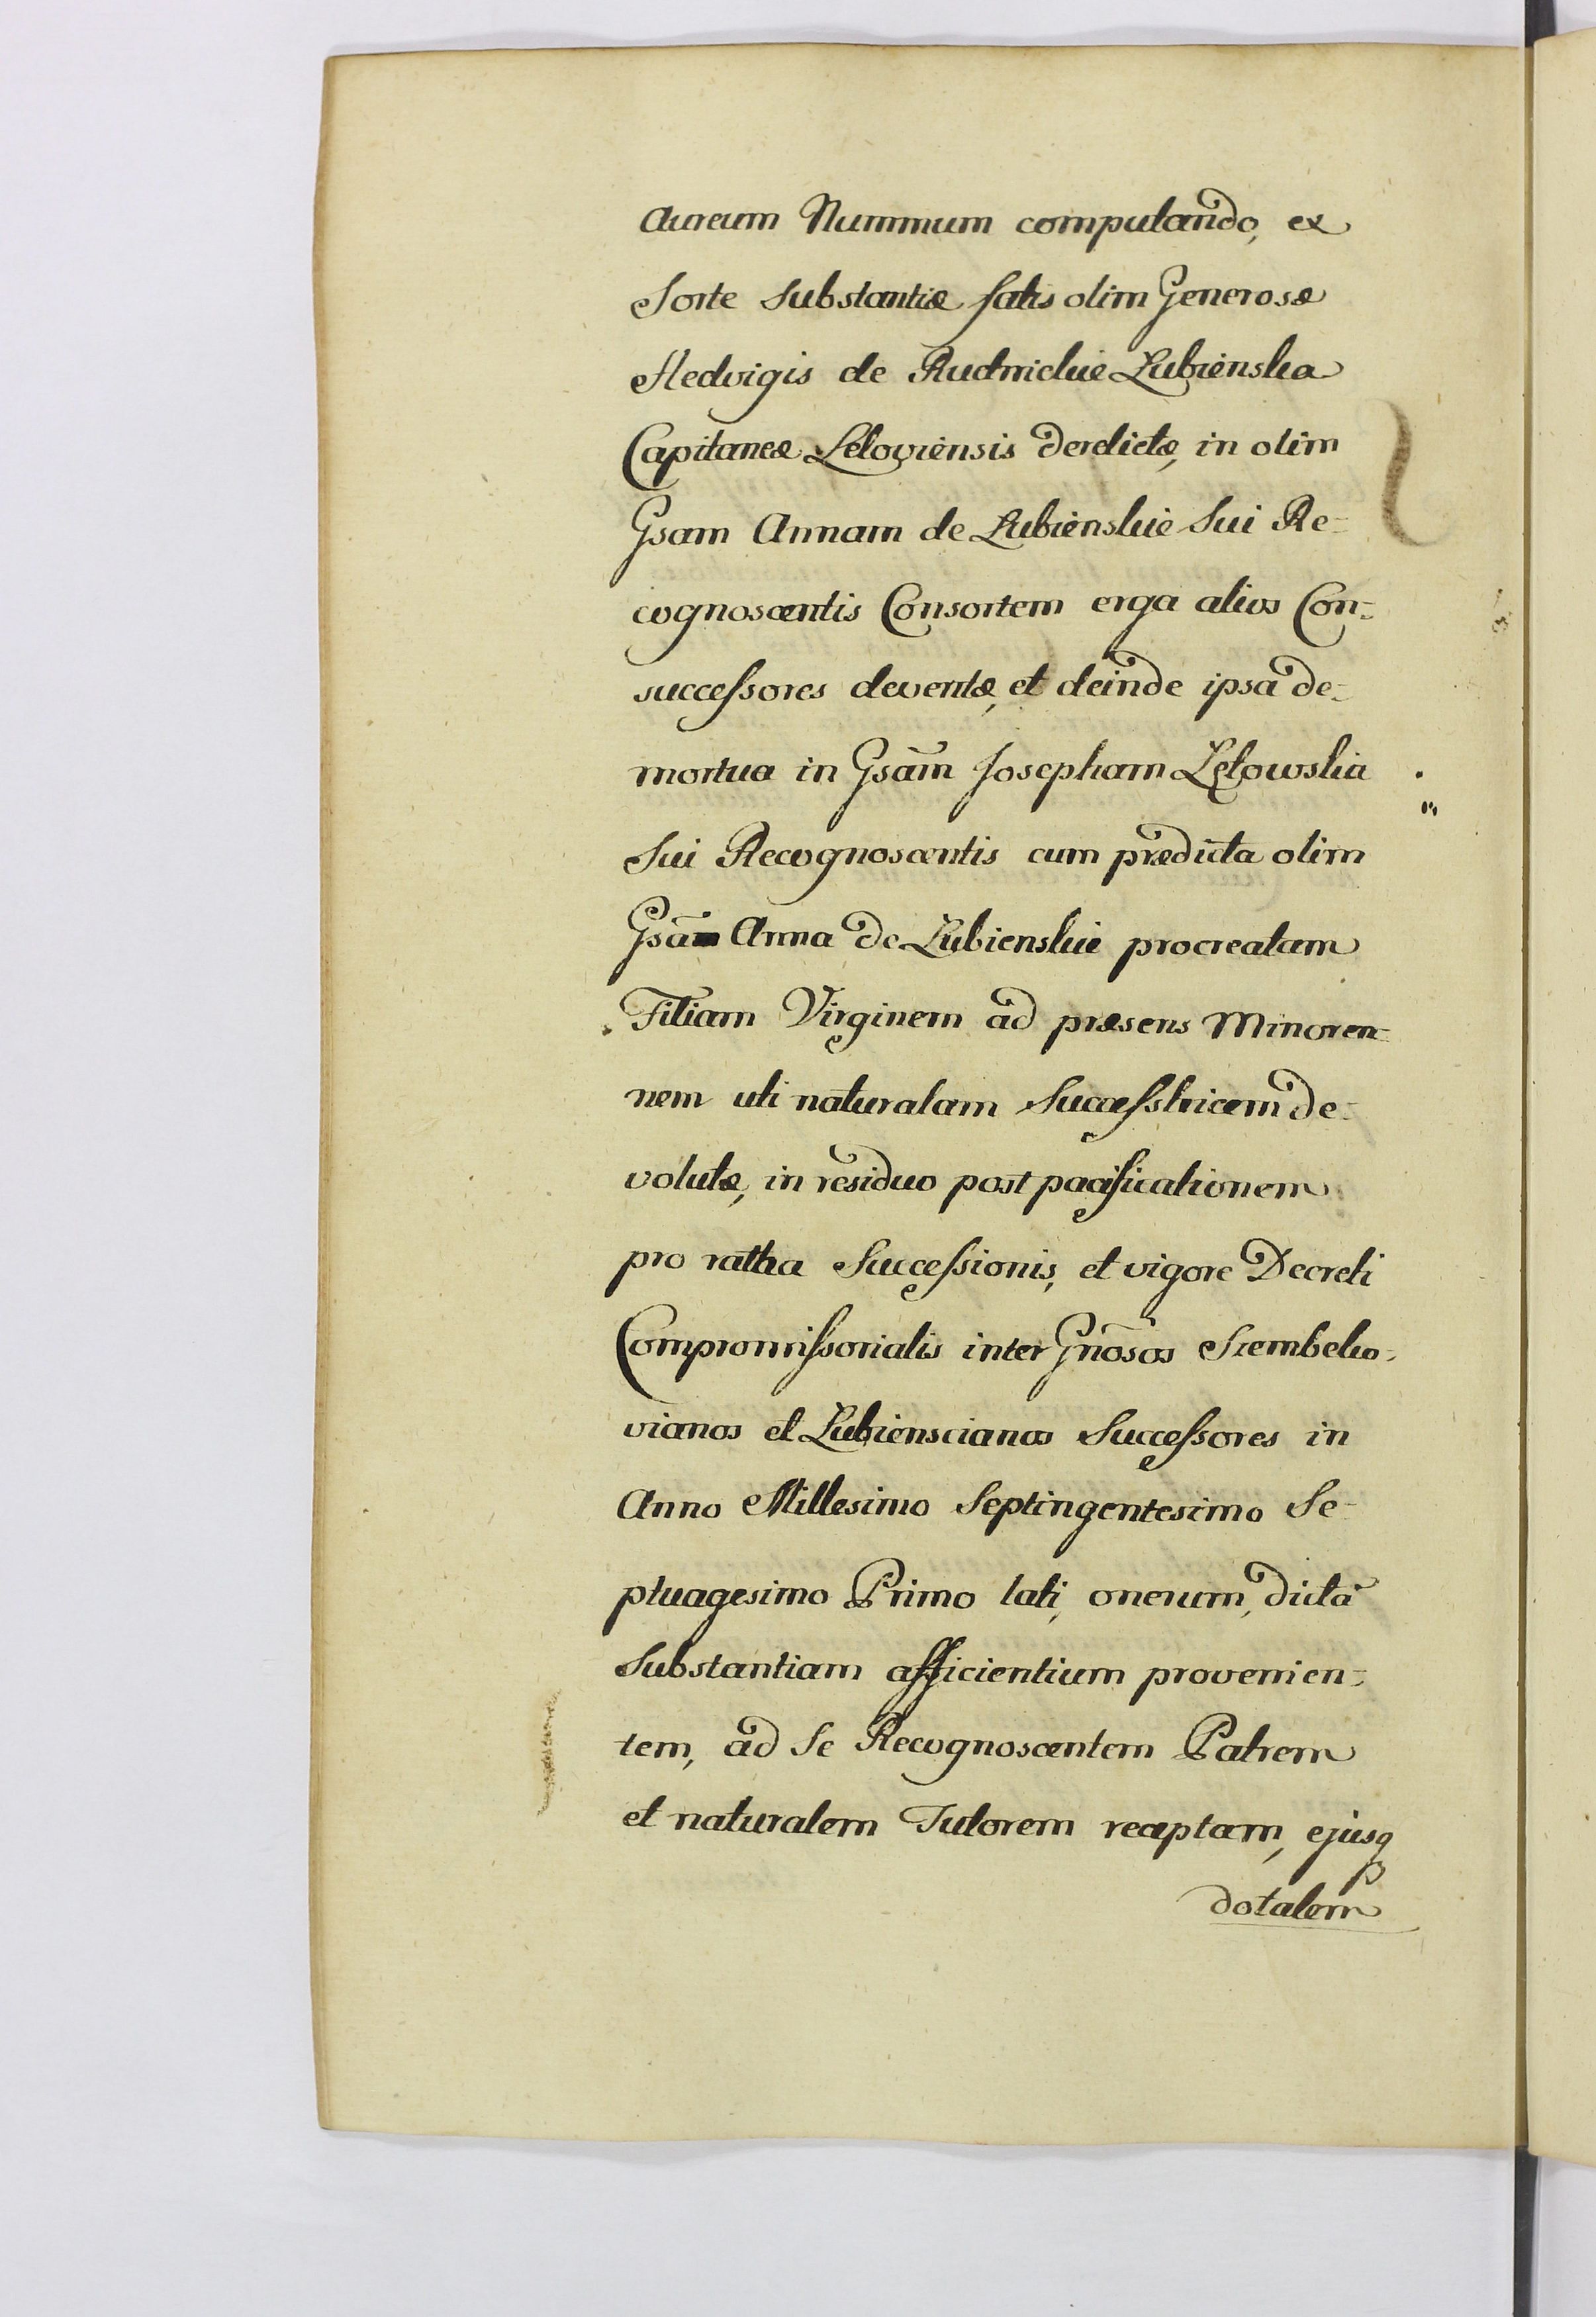 Aureum Nummum computando, ex
Sorte Substantiæ fatis olim Generosæ
Hedvigis de Rudnickie Lubienska
Capitaneæ Leloviensis derelictæ, in olim
Gsam Annam de Lubienskie Sui Re-
cognoscentis Consortem erga alios Con-
successores deventæ, et deinde ipsa de-
mortua in Gsam Josepham Żełowska
Sui Recognoscentis cum prædicta olim
Gsa Anna de Lubienskie procreatam
Filiam Virginem ad præsens Minoren-
nem uti naturalam Successtricem de-
volutæ, in residuo post pacificationem
pro ratha Successionis, et vigore Decreti
Compromissorialis inter Gnosos Szembeko-
vianos et Lubienscianos Successores in
Anno Millesimo Septingentesimo Se-
ptuagesimo Primo lati, onerum, dictã
Substantiam afficientium provenien-
tem, ad Se Recognoscentem Patrem
et naturalem Tutorem receptam, ejusq
dotalem